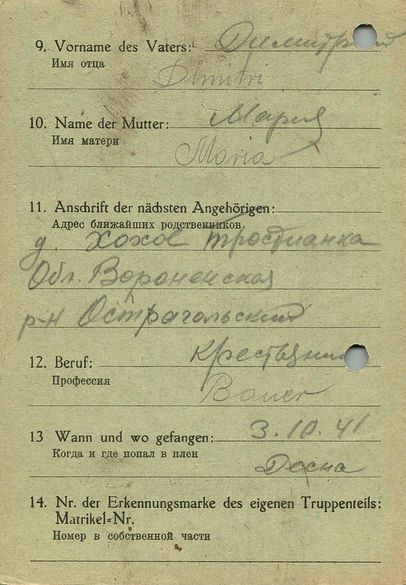 9. Vorname des Vaters: Димитрий
Имя отца
Dimitri
10. Name der Mutter: Мария
Имя матери
Maria
11. Anschrift der nächsten Angehörigen:
Адрес ближайших родственников
д. Хохол Тростианка
Обл. Вороненская
р-н Острагольский
12. Beruf: Крестьянин
Профессия
Bauer
13 Wann und wo gefangen: 3.10.41
Когда и где попал в плен
Десна
14. Nr. der Erkennungsmarke des eigenen Truppenteils:
Matrikel=Nr.
Номер в собственной части